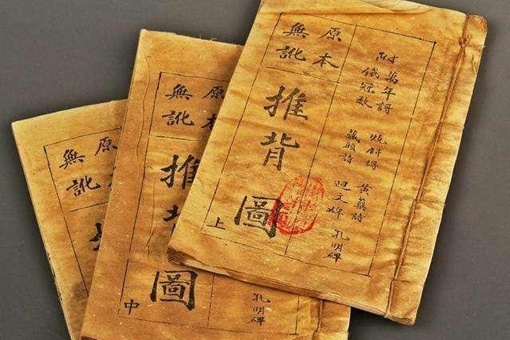 附
萬年謌
鐵冠數
燒餅謌
藏頭詩
黃蘗詩
迴文碑
孔明碑
原本
無訛
推背圖
上
原本
無訛
推
圖
中
孔明碑
原
無訛